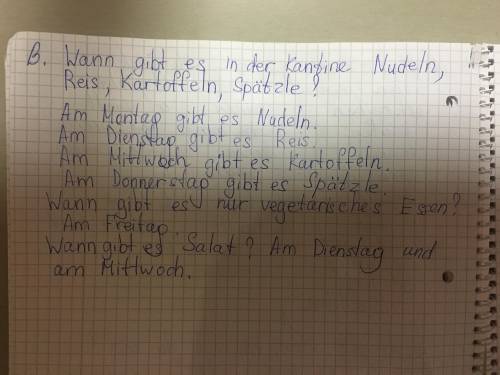 B. Wann gibt es in der Kantine Nudeln,
Reis, Kartoffeln, Spätzle?
Am Montag gibt es Nudeln.
Am Dienstag gibt es Reis.
Am Mittwoch gibt es Kartoffeln.
Am Donnerstag gibt es Spätzle.
Wann gibt es nur vegetarisches Essen?
Am Freitag.
Wann gibt es Salat? Am Dienstag und
am Mittwoch.